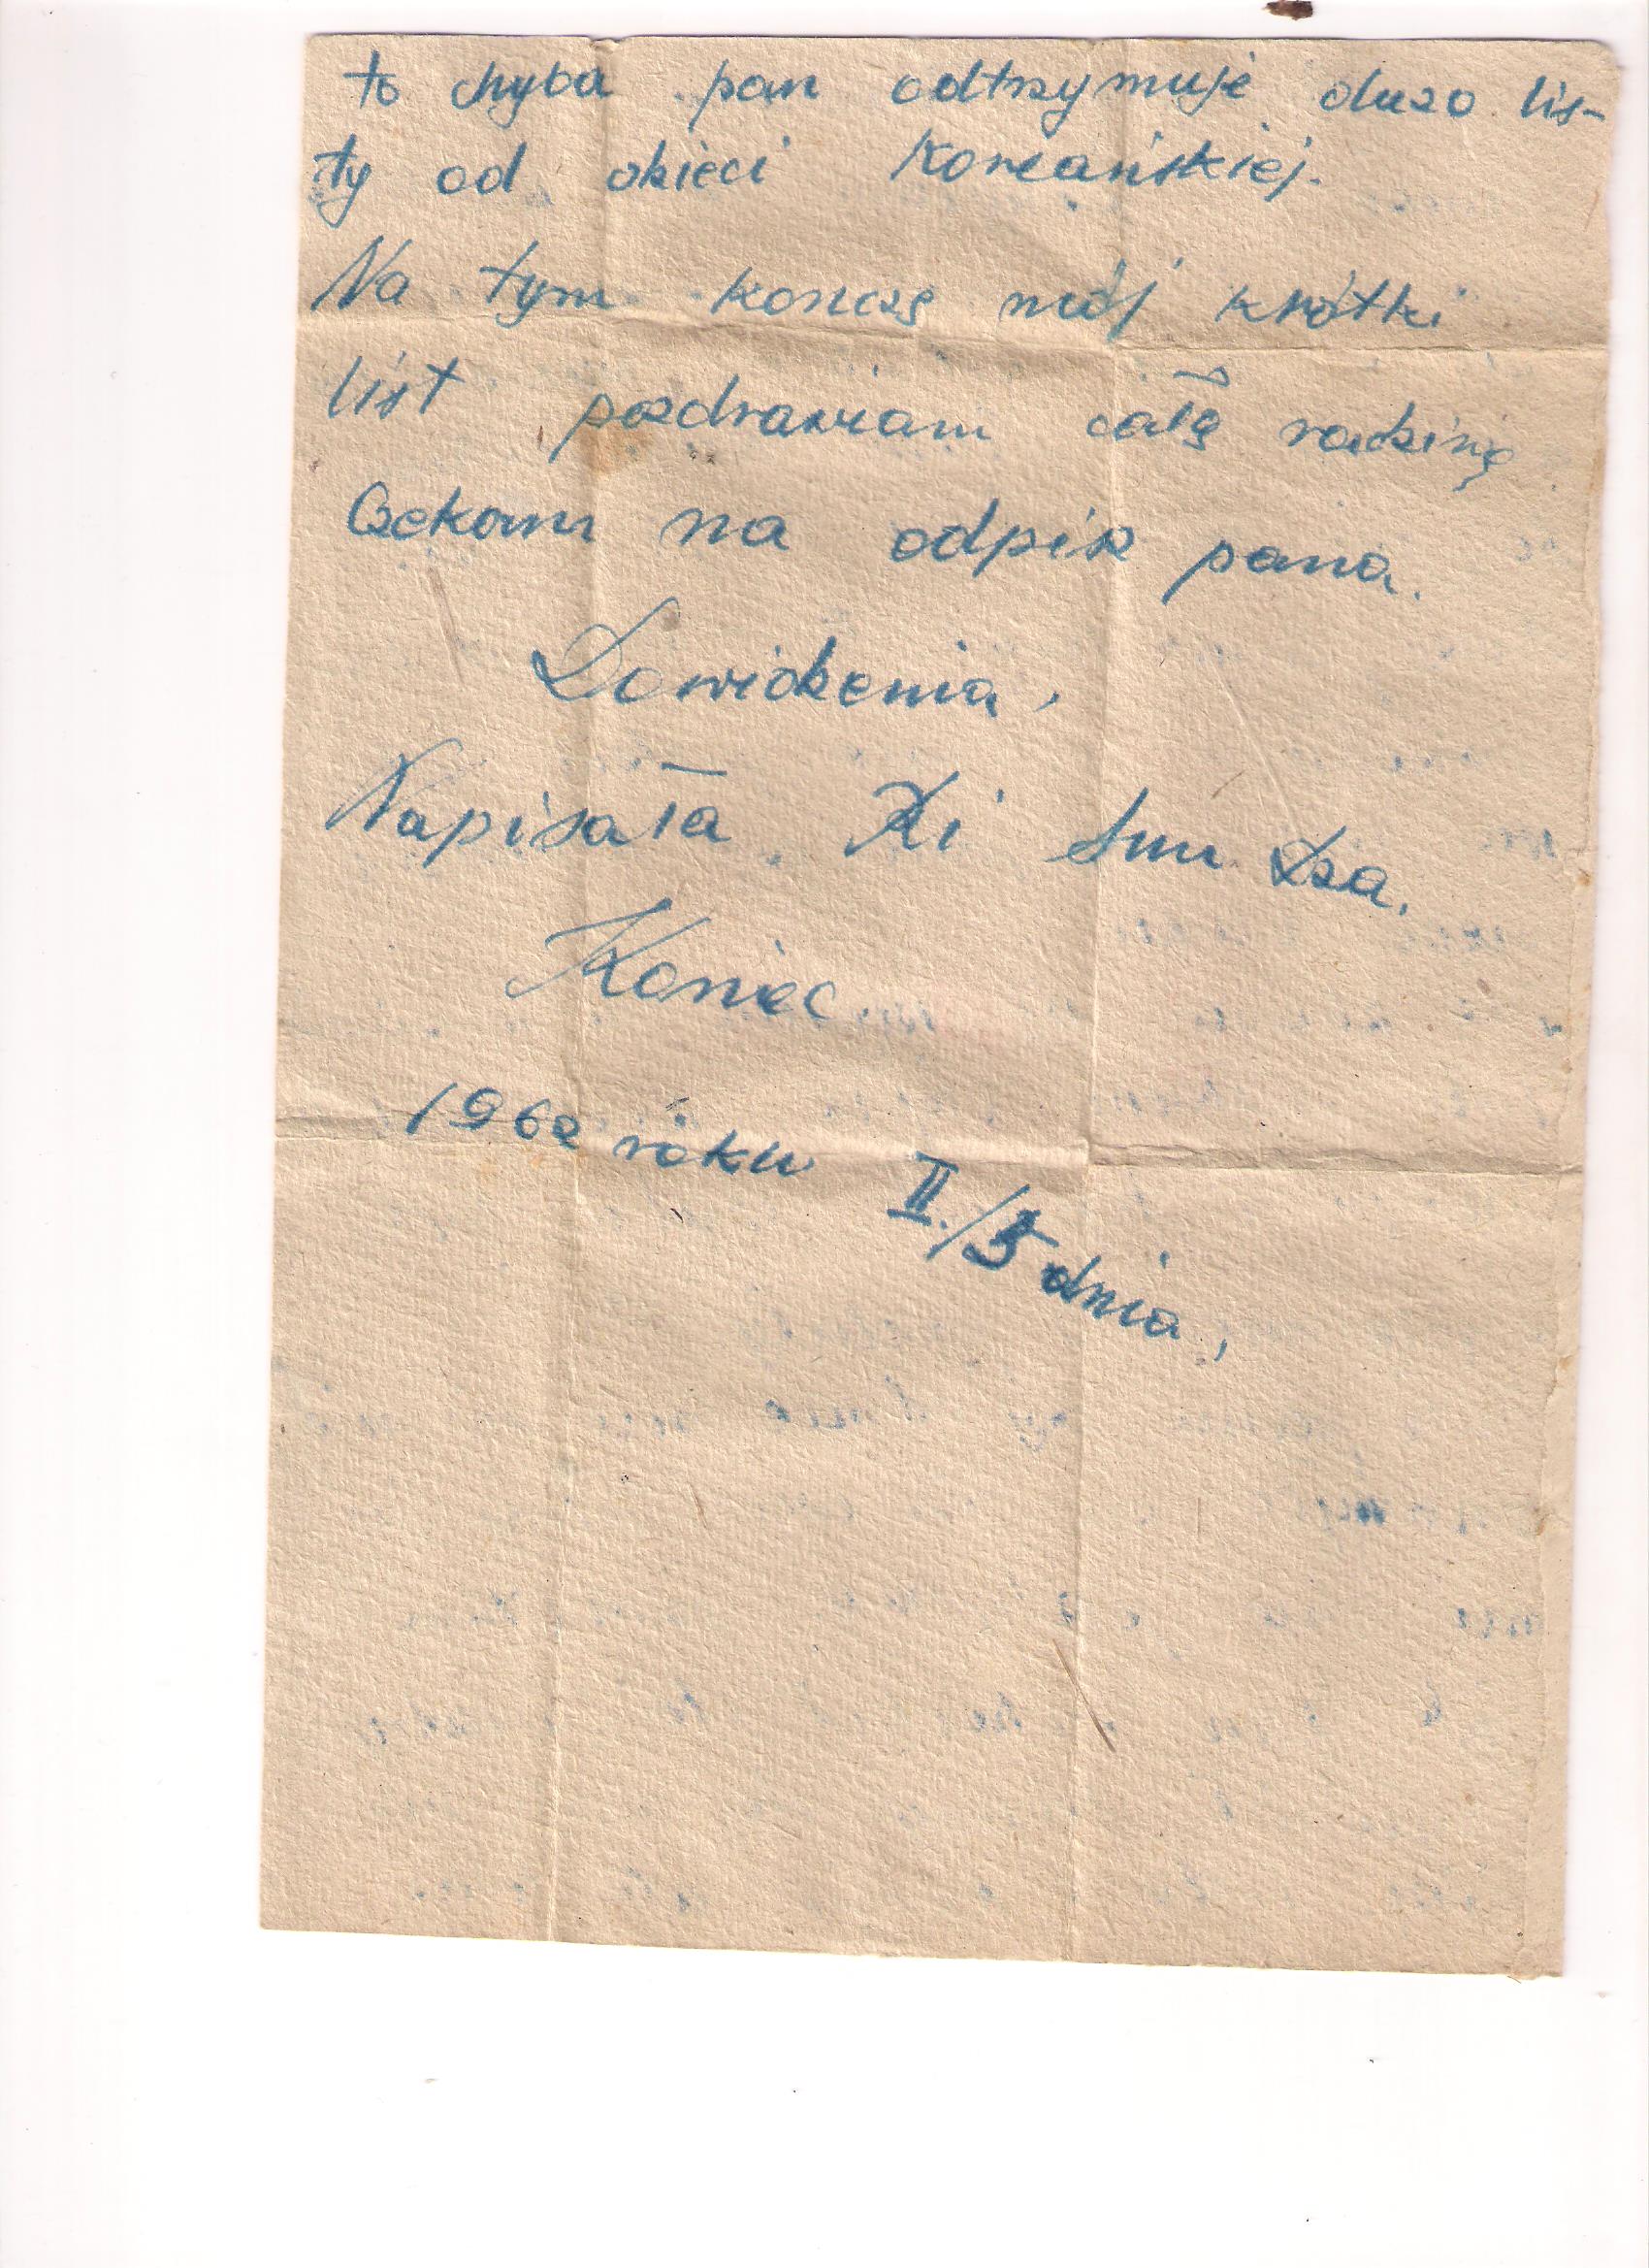 to chyba pan odtrzymuje duzo lis-
ty od dzieci Koreańskiej.
Na tym koncze mój krótki
list pozdrawiam całę rodzinę
Czekam na odpis pana.
Dowidzenia,
Napisała Ki Sun Dza.
Koniec
1962 roku II./5 dnia,